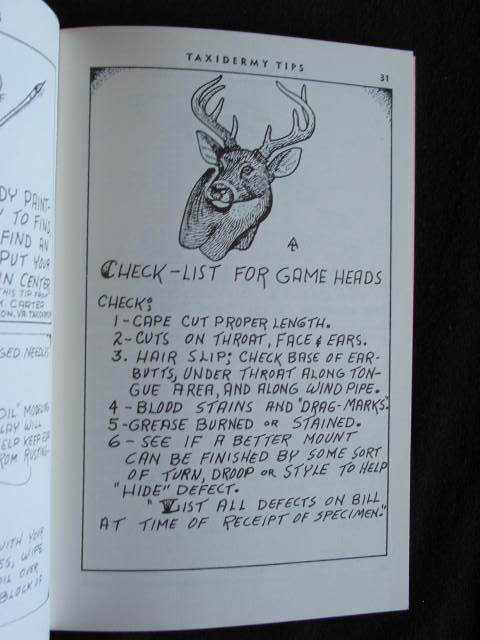 DY PAINT-
TO FIND
FIND AN
PUT YOUR
IN CENTER
THIS TIP FROM
CARTER
ON, VA. TAXIDERMY
SED NEEDLES
OIL" MODELING
LAY WILL
ELP KEEP
ROM RUSTING.
WITH YOUR
ES, WIPE
OIL OVER
BLOCK OF
TAXIDERMY TIPS
31
CHECK-LIST FOR GAME HEADS
CHECK;
1 - CAPE CUT PROPER LENGTH.
2 - CUTS ON THROAT, FACE & EARS.
3. HAIR SLIP; CHECK BASE OF EAR-
BUTTS, UNDER THROAT ALONG TON-
GUE AREA, AND ALONG WIND PIPE.
4 - BLOOD STAINS AND "DRAG-MARKS".
5 - GREASE BURNED OR STAINED.
6 - SEE IF A BETTER MOUNT
CAN BE FINISHED BY SOME SORT
OF TURN, DROOP OR STYLE TO HELP
"HIDE" DEFECT.
"LIST ALL DEFECTS ON BILL
AT TIME OF RECEIPT OF SPECIMEN."